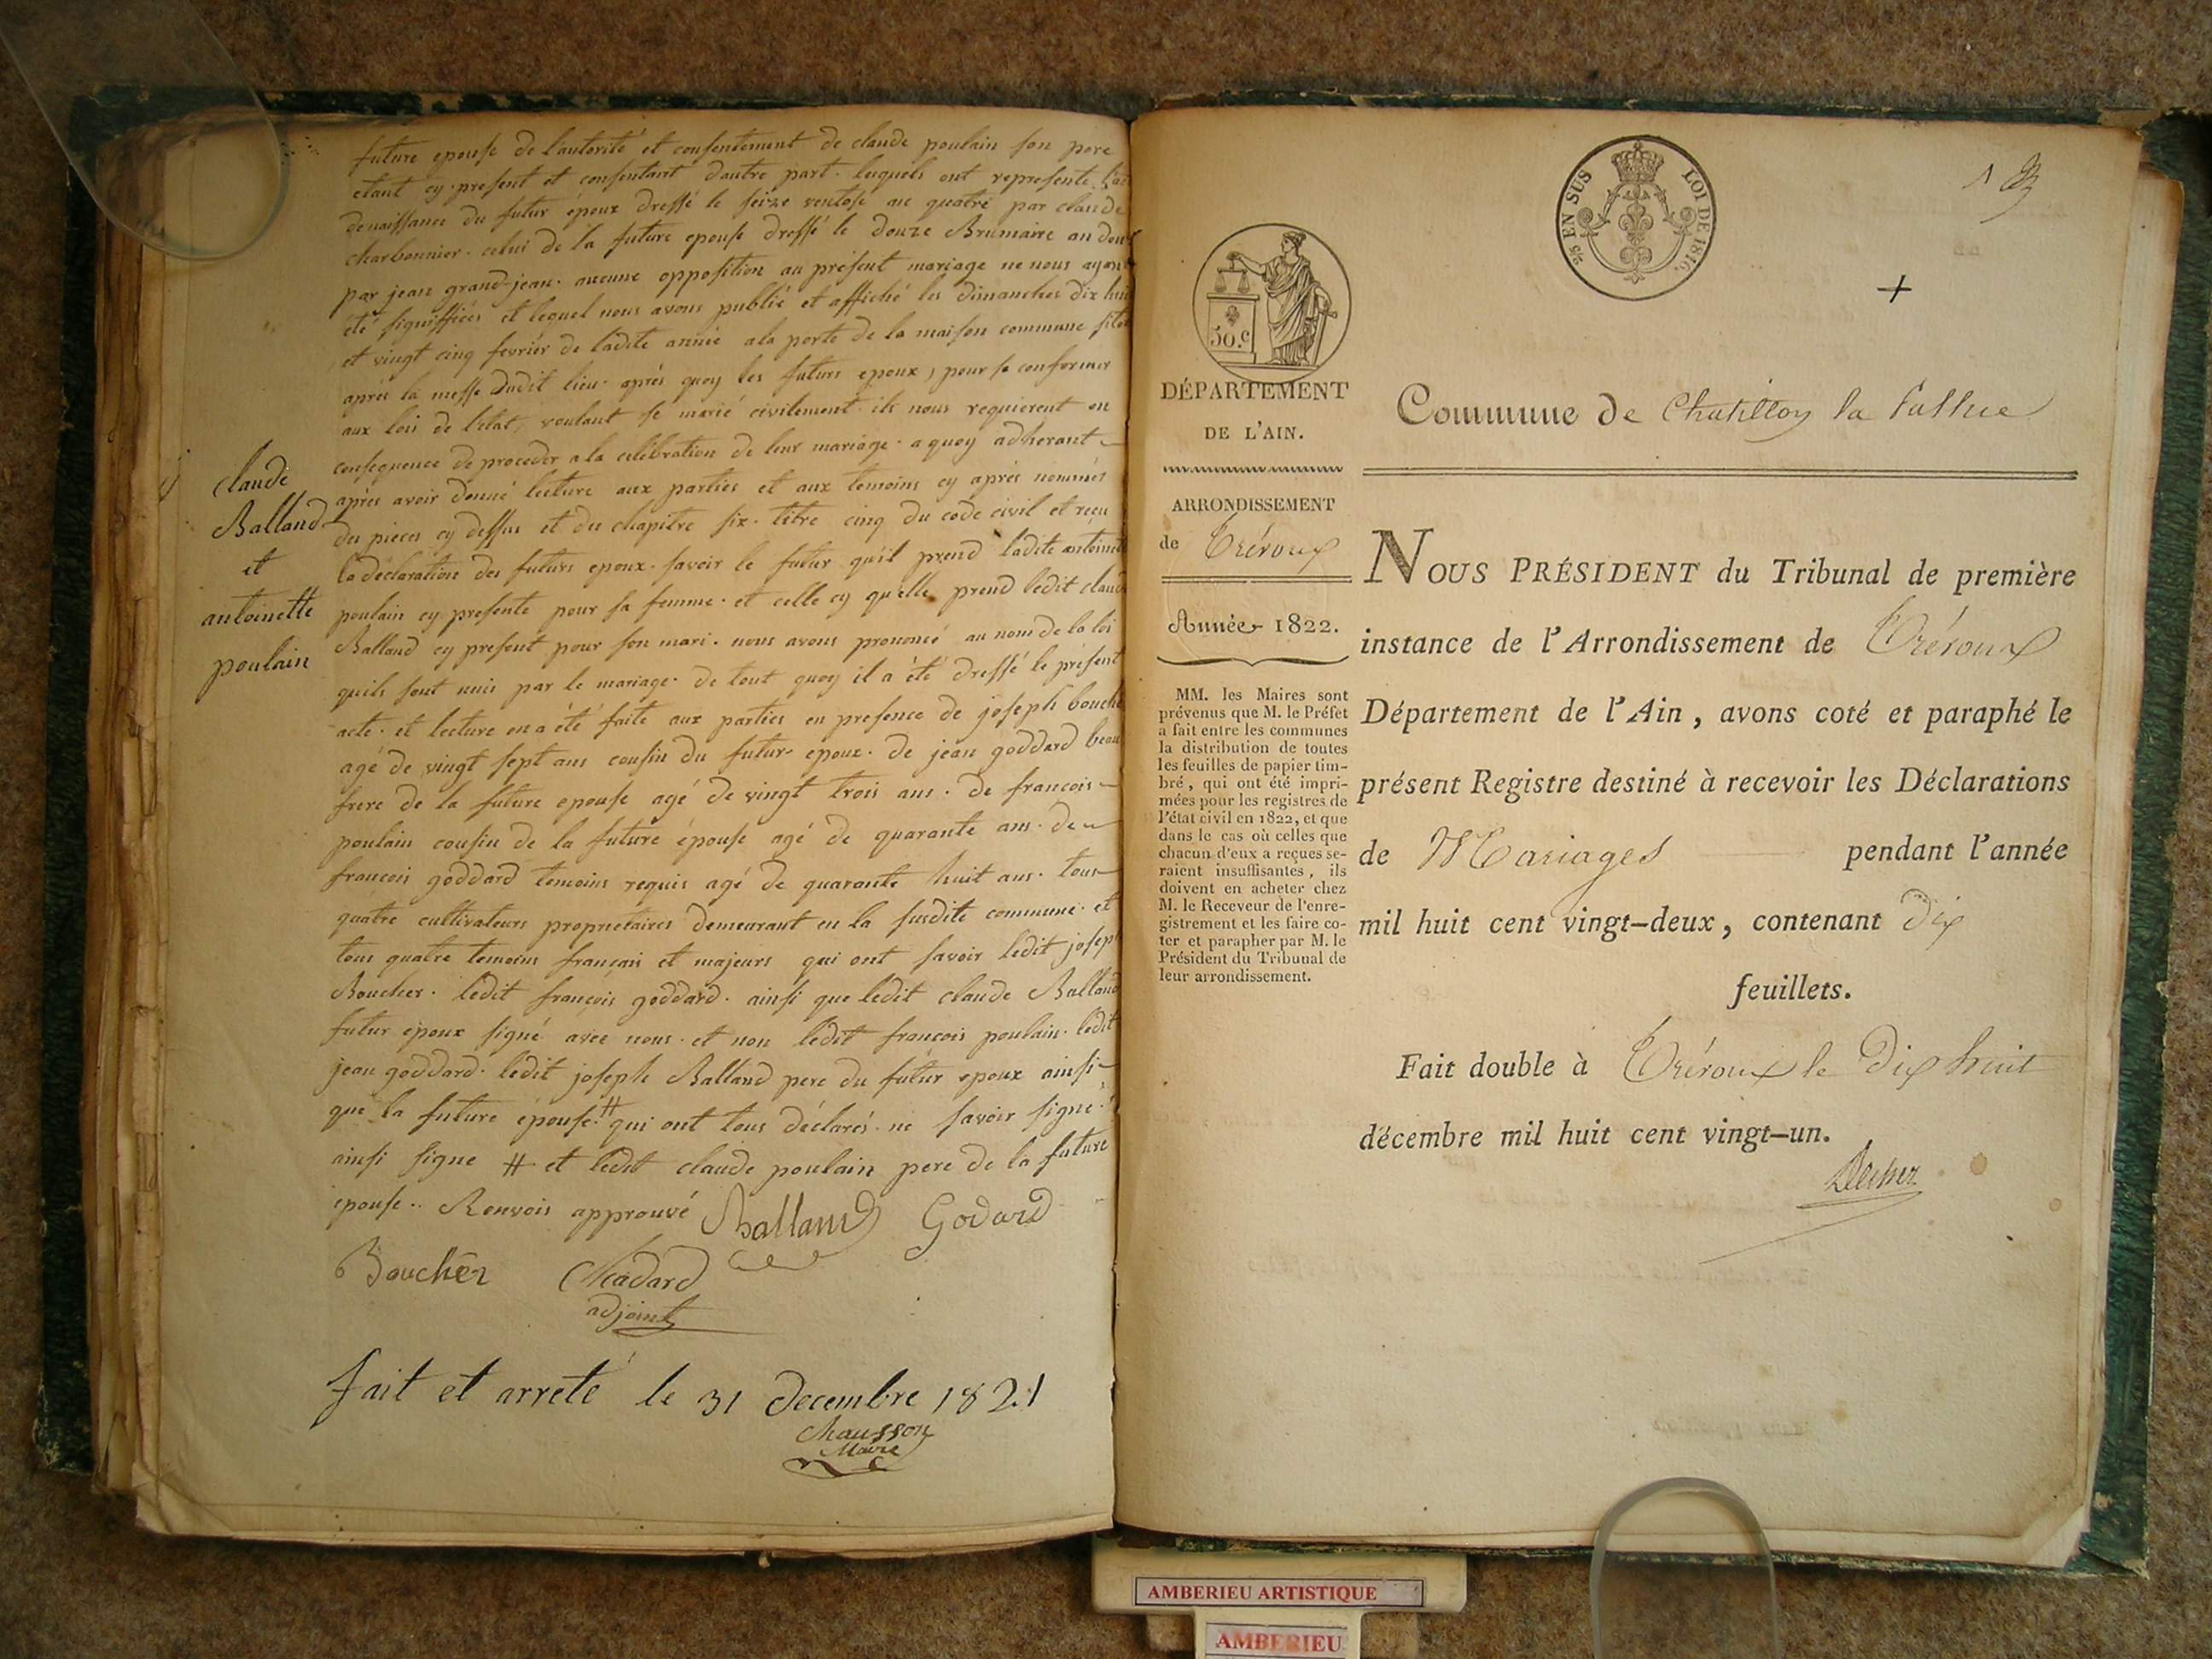 future epouse de l'autorité et consentement de claude poulain son pere
etant cy present et consentant d'autre part. lesquels ont representé
denaissance du futur époux dressé le seize ventose an quatre par claude
charbonnier. celui de la future epouse dressé le douze Brumaire an
par jean grand-jean. aucune opposition au présent mariage ne nous ayant
été signiffiées et lequel nous avons publié et affiché les dimanches dix huit
et vingt cinq fevrier de ladite année ala porte de la maison commune
après la messe dudit lieu. après quoy les futurs epoux, pour se conformer
aux lois de l'état, voulant se marié civilement. ils nous requierent en
consequence de proceder a la célébration de leur mariage. a quoy adherant
après avoir donné lecture aux parties et aux temoins cy après nommés
des pieces cy dessus et du chapitre six. titre cinq du code civil et recu
la déclaration des futurs epoux. savoir le futur qu'il prend ladite antoinette
poulain cy presente pour sa femme. et celle cy qu'elle prend ledit claude
Balland cy present pour son mari. nous avons prononcé au nom de la loi
quils sont unis par le mariage. de tout quoy il a été dressé le présent
acte. et lecture en a été faite aux parties en presence de joseph boucher
agé de vingt sept ans cousin du futur epoux. de jean goddard beau
frere de la future epouse agé de vingt trois ans. de francois
poulain cousin de la future épouse agé de quarante ans. de
francois goddard temoins requis agé de quarante huit ans. tous
quatre cultivateurs proprietaires demeurant en la susdite commune. et
tous quatre temoins français et majeurs qui ont savoir ledit joseph
Boucher. ledit françois goddard. ainsi que ledit claude Balland
futur époux signé avec nous. et non ledit francois poulain. ledit
jean goddard. ledit joseph Balland pere du futur epoux ainsi
que la future épouse # qui ont tous déclarés ne savoir signé.
ainsi signe # et ledit claude poulain pere de la future
epouse.. Renvois approuvé Balland Godard
Boucher Chadard
adjoint
fait et arrete le 31 decembre 1821
Chausson
Maire
claude
Balland
et
antoinette
poulain
5/10 EN SUS LOI DE 1816.
+
50.c
DÉPARTEMENT
DE L'AIN.
Commune de Chatillon la Pallue
ARRONDISSEMENT
de Trévoux
Année 1822.
MM. les Maires sont
prévenus que M. le Préfet
a fait entre les communes
la distribution de toutes
les feuilles de papier tim-
bré, qui ont été impri-
mées pour les registres de
l'état civil en 1822, et que
dans le cas où celles que
chacun d'eux a reçues se-
raient insuffisantes, ils
doivent en acheter chez
M. le Receveur de l'enre-
gistrement et les faire co-
ter et parapher par M. le
Président du Tribunal de
leur arrondissement.
NOUS PRÉSIDENT du Tribunal de première
instance de l'Arrondissement de Trévoux
Département de l'Ain, avons coté et paraphé le
présent Registre destiné à recevoir les Déclarations
de Mariages pendant l'année
mil huit cent vingt-deux, contenant dix
feuillets.
Fait double à Trévoux le dix huit
décembre mil huit cent vingt-un.
AMBERIEU ARTISTIQUE
AMBERIEU